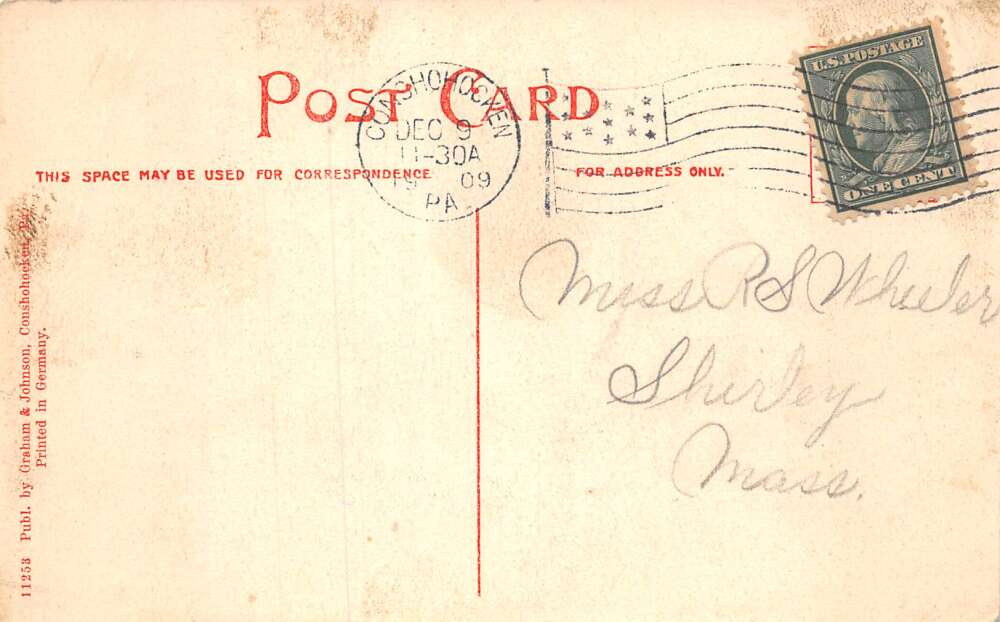 POST CARD
CONSHOHOCKEN
DEC 9
11-30A
19 09
PA
U.S. POSTAGE
ONE CENT
THIS SPACE MAY BE USED FOR CORRESPONDENCE
FOR ADDRESS ONLY.
Miss R S Wheeler
Shirley
Mass.
11253 Publ. by Graham & Johnson, Conshohocken, Pa.
Printed in Germany.